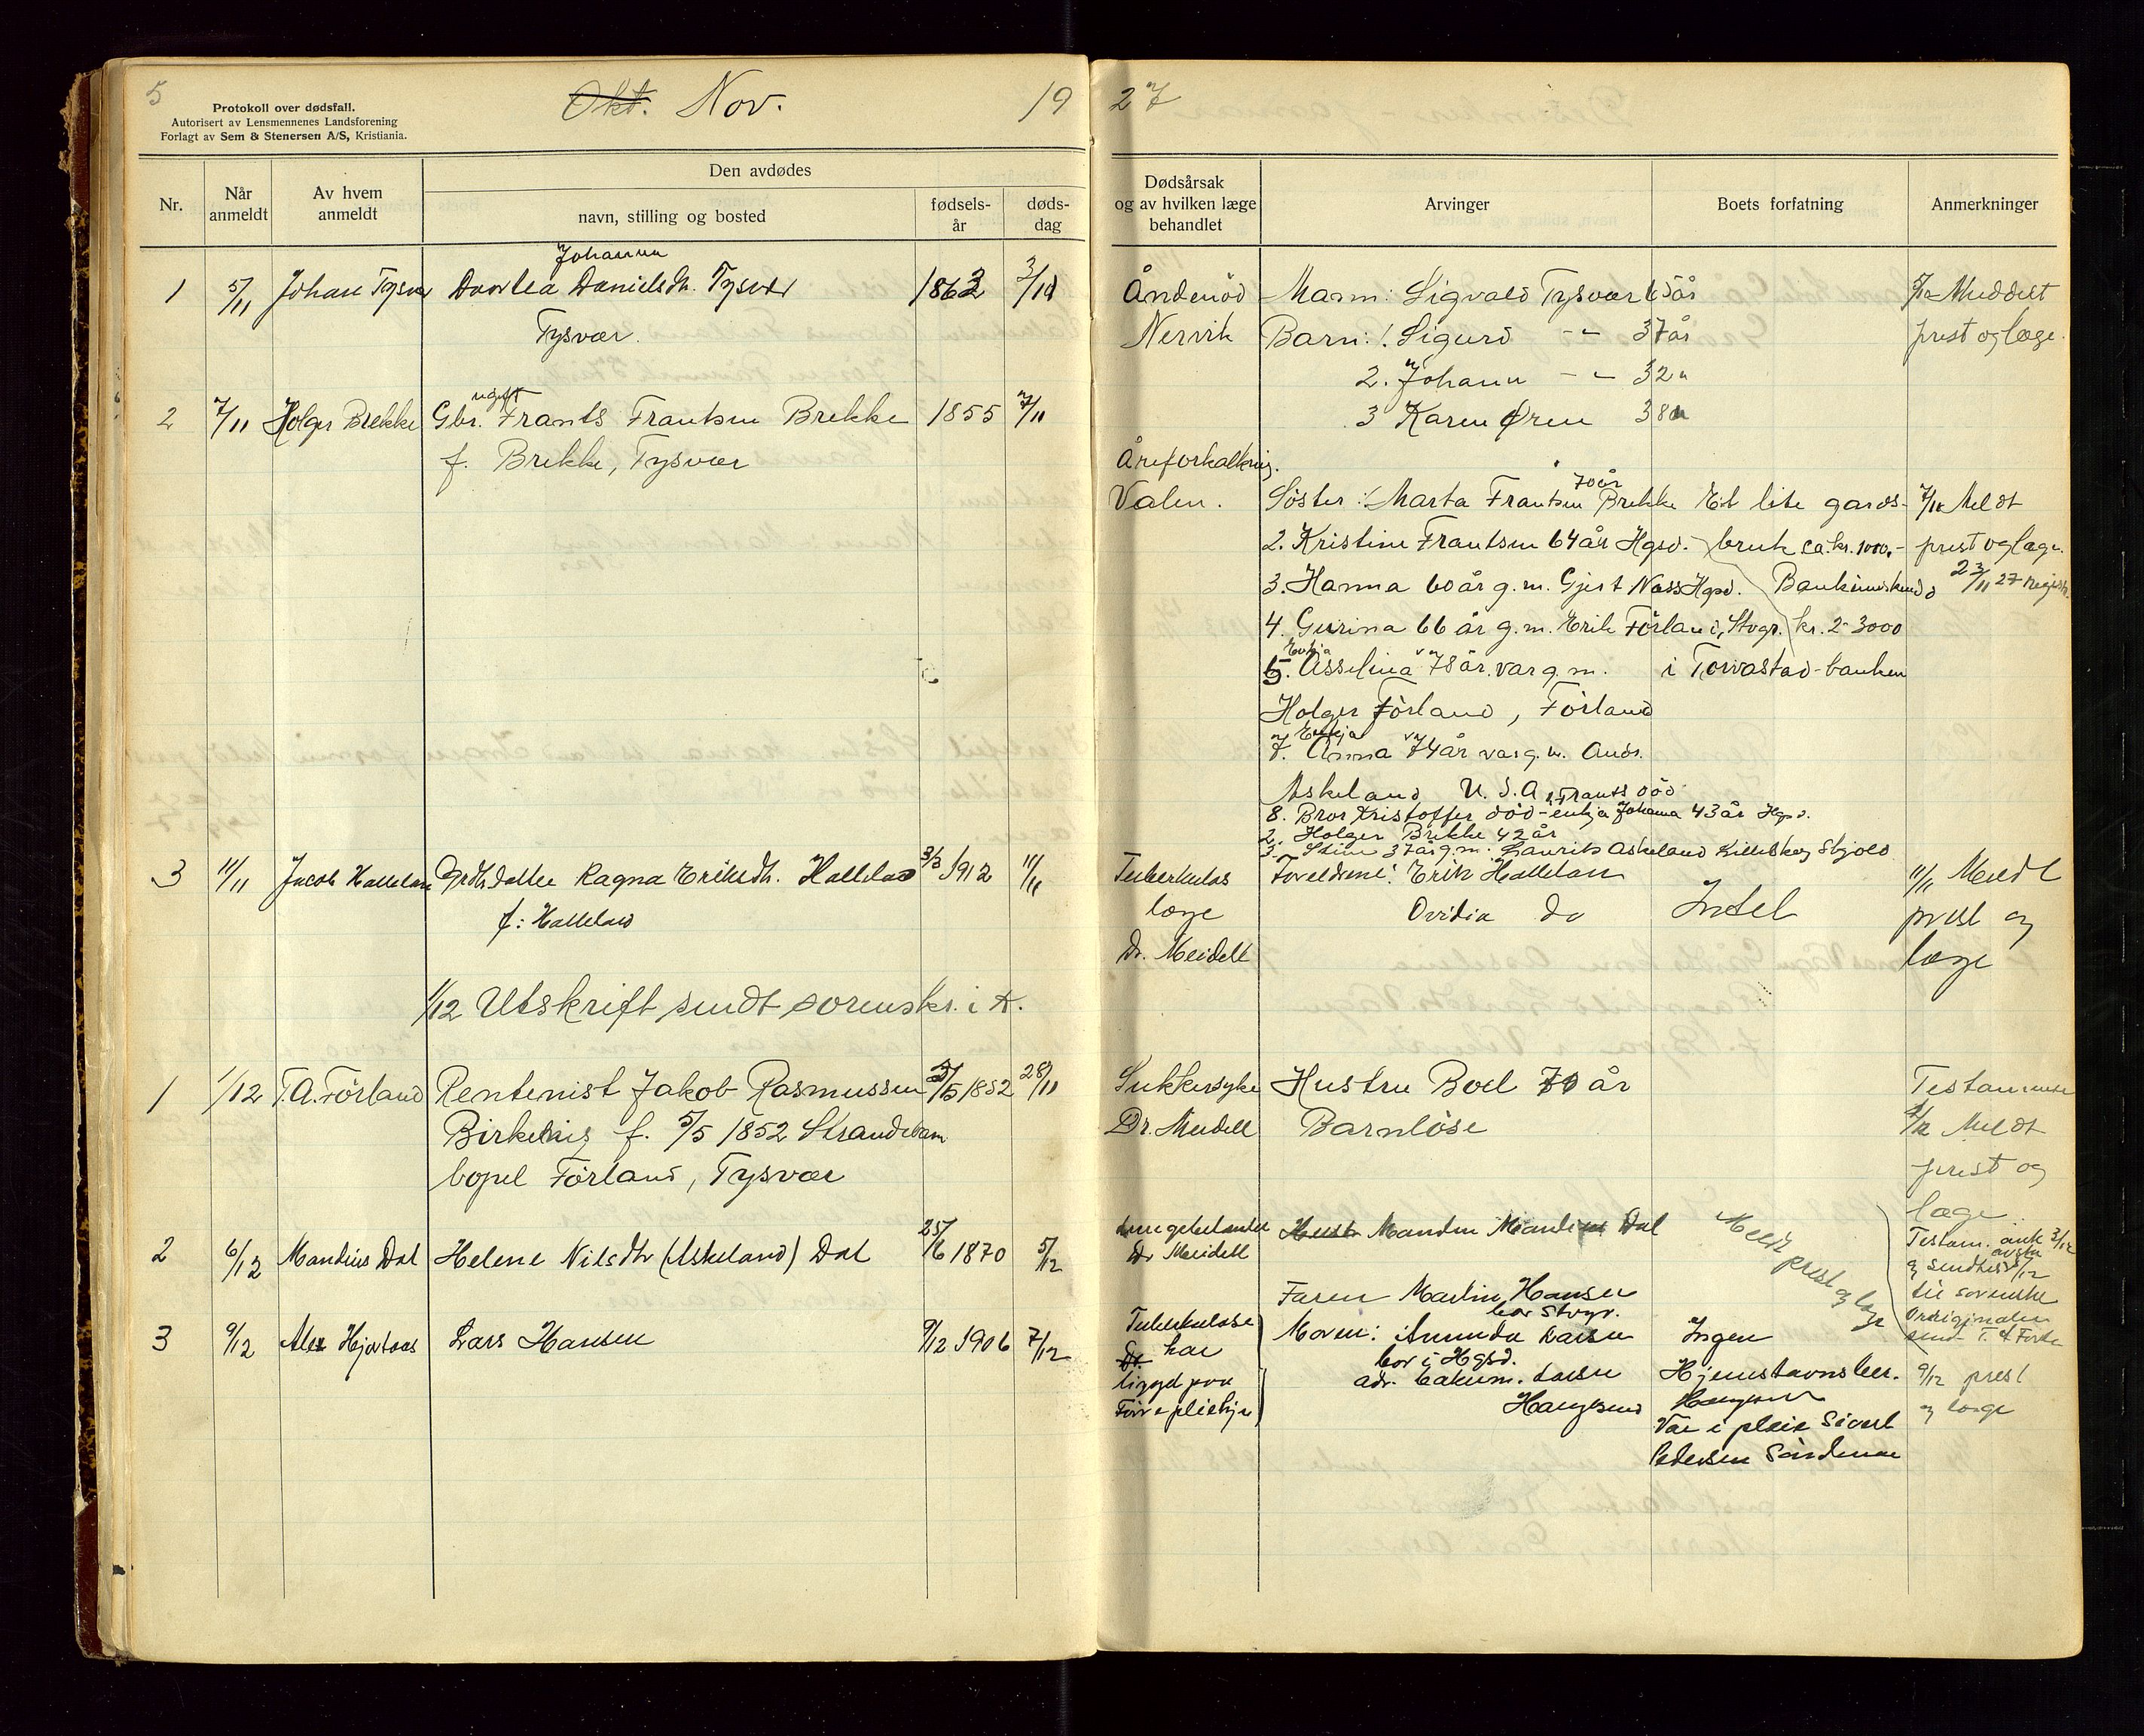 5
Protokoll over dødsfall.
Autorisert av Lensmennenes Landsforening
Forlagt av Sem & Stenersen A/S, Kristiania.
Okt. Nov.
19
27
Nr.
Når anmeldt
Av hvem anmeldt
Den avdødes
navn, stilling og bosted
fødsels-år
døds-dag
Dødsårsak og av hvilken læge behandlet
Arvinger
Boets forfatning
Anmerkninger
Johanna
1 5/11 Johan Tysvær Dortea Danielsdtr. Tysvær 1862 3/11
Tysvær.
Åndenöd
Nervik
Mann: Sigvald Tysvær 65 år
Barn: 1. Sigurd -"- 37 år
2. Johann -"- 32 "
3 Karen Øren 38 "
5/12 Meddelt
prest og læge.
ugift
2 7/11 Holger Brekke Gbr. Frants Frantsen Brekke 1855 7/11
f. Brekke, Tysvær
Åreforkalkning.
Valen.
70 år
Söster: 1. Marta Frantsen Brekke
2. Kristine Frantsen 64 år Hgsd.
3. Hanna 60 år g.m. Gjert Næss Hgsd.
4. Gurina 66 år g.m. Erik Förland, Stvgr.
Enkja
5. Asselina 78 år. var g.m.
Holger Förland, Förland
Enkja
7. Anna 74 år var g.m. Ands.
Askeland U.S.A. 1. Frants död
8. Bror Kristoffer död - enkja Johanna 43 år Hgsd.
2. Holger Brekke 42 år
3. Stine 37 år g.m. Laurits Askeland Skjold
Et lite gards-
bruk ca. kr. 1000,-
Bankinnskudd
kr. 2-3000
i Torvastad-banken
7/11 Meldt
prest og læge.
23/11 27 registr.
3 11/11 Jacob Halleland Grdbr.datter Ragna Eriksdtr. Halleland 3/3 1912 11/11
f: Halleland
Tuberkulos
læge
Dr. Meidell
Foreldrene: Erik Halleland
Ovidia do
Intel
11/11 Meldt
prest og
læge
1/12 Utskrift sendt sorenskr. i K.
1 1/12 T.A. Förland Rentenist Jakob Rasmussen 5/5 1852 28/11
Birkeknes f. 5/5 1852 Strandebarm
bopel Förland, Tysvær
Sukkersyke
Dr. Meidell
Hustru Boel 70 år
Barnlöse
Testamente
1/12 Meldt
prest og
læge
2 6/12 Mandius Dal Helene Nilsdtr (Askeland) Dal 25/6 1870 5/12
Dr Meidell
Hustr Manden Mandius Dal
Meldt prest og læge
Testam.
til sorenskr
3 9/12 Alex Hjortaas Lars Hansen 9/12 1906 7/12
Tuberkulose
Dr. har
ligget paa
Faren Martin Hansen
bor Stvgr.
Moren: Amunda Larsen
bor i Hgsd.
adr. Larsen
Haugesund
Ingen
Hjemstavnsber.
Haugesund
Var i pleie Sivert
Pedersen
9/12 prest
og læge